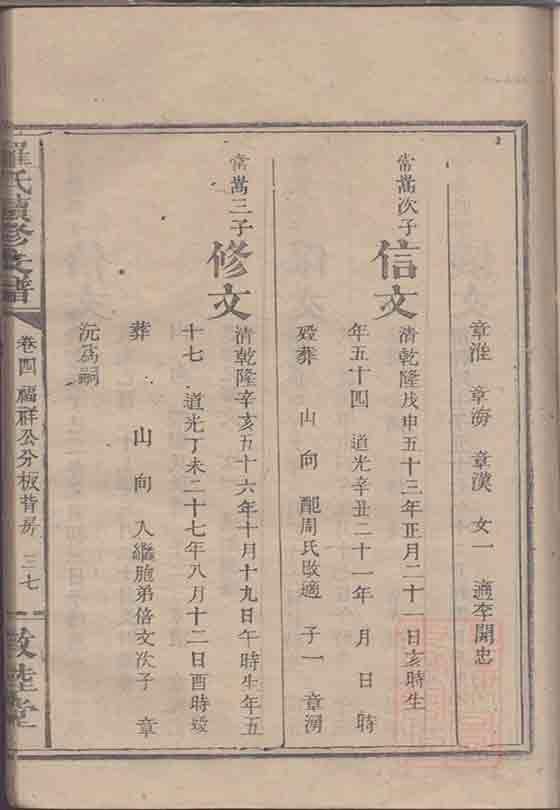 章淮 章海 章漢 女一 適李開忠
當嵩次子
信文
清乾隆戊申五十三年正月二十一日亥時生
年五十四 道光辛丑二十一年 月 日 時
歿葬 山 向 配周氏改適 子一 章湧
當嵩三子
修文
清乾隆辛亥五十六年十月十九日午時生年五
十七 道光丁未二十七年八月十二日酉時歿
葬 山 向 入繼胞弟倍文次子 章
沅為嗣
羅氏續修支譜
卷四 福祥公分板背房 三七
敦睦堂